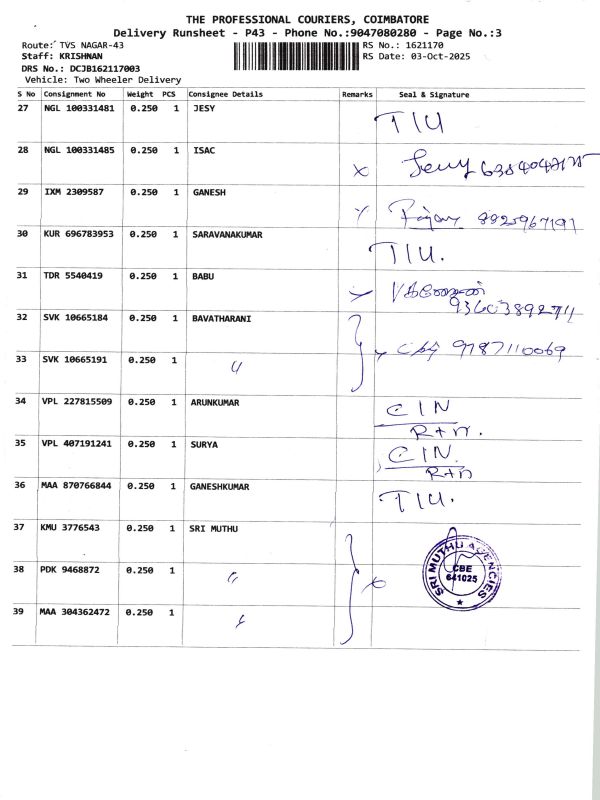 THE PROFESSIONAL COURIERS, COIMBATORE
Delivery Runsheet - P43 - Phone No.:9047080280 - Page No.:3
Route: TVS NAGAR-43 RS No.: 1621170
Staff: KRISHNAN RS Date: 03-Oct-2025
DRS No.: DCJB162117003
Vehicle: Two Wheeler Delivery
S No Consignment No Weight PCS Consignee Details Remarks Seal & Signature
27 NGL 100331481 0.250 1 JESY T/U
28 NGL 100331485 0.250 1 ISAC
29 IXM 2309587 0.250 1 GANESH 8925967191
30 KUR 696783953 0.250 1 SARAVANAKUMAR T/U.
31 TDR 5540419 0.250 1 BABU
9360389271
32 SVK 10665184 0.250 1 BAVATHARANI
33 SVK 10665191 0.250 1 〃 9787110069
34 VPL 227815509 0.250 1 ARUNKUMAR C/N
R+n.
35 VPL 407191241 0.250 1 SURYA C/N.
R+n
36 MAA 870766844 0.250 1 GANESHKUMAR T/U.
37 KMU 3776543 0.250 1 SRI MUTHU
38 PDK 9468872 0.250 1 〃
39 MAA 304362472 0.250 1 〃
SRI MUTHU AGENCIES
CBE
641025